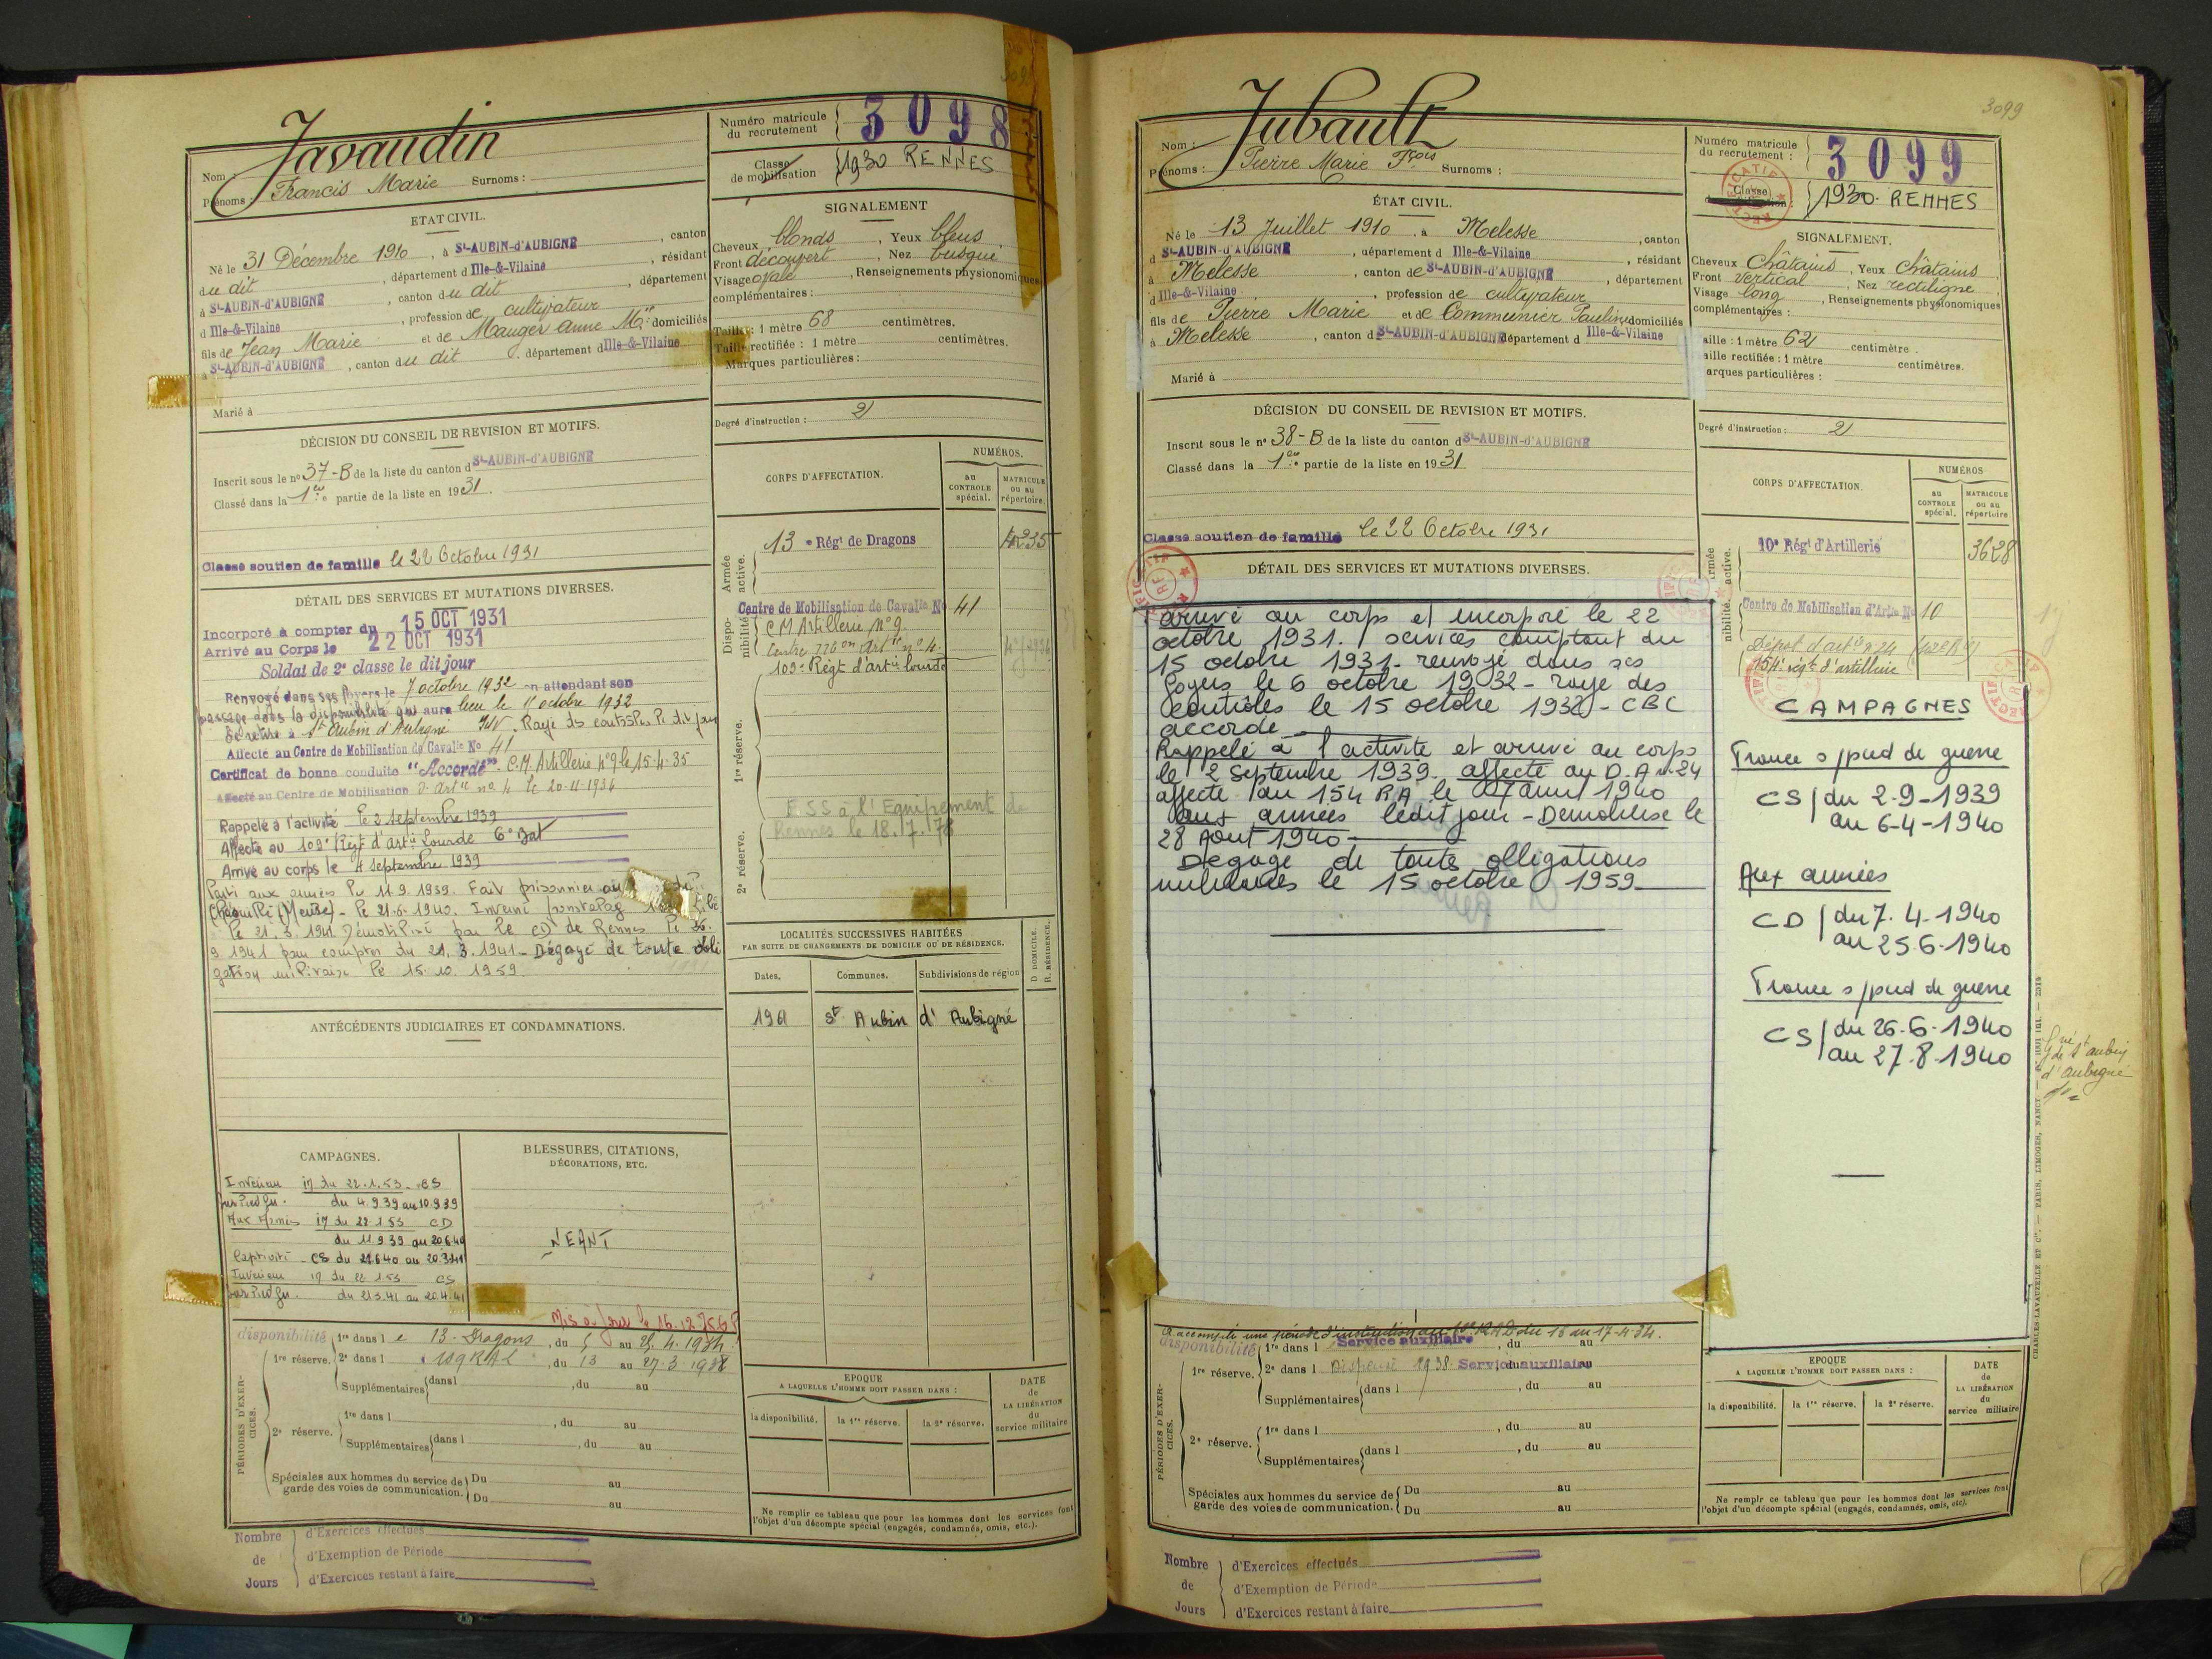 Javaudin
Nom :
Prénoms : Francis Marie Surnoms :
Numéro matricule du recrutement 3098
Classe de mobilisation 1930 RENNES
ETAT CIVIL.
Né le 31 Décembre 1910, à St-AUBIN-d'AUBIGNÉ, canton
du dit, département d Ille-&-Vilaine, résidant
à St-AUBIN-d'AUBIGNÉ, canton du dit, département
d Ille-&-Vilaine, profession de cultivateur
fils de Jean Marie et de Mauger Anne Mie domiciliés
à St-AUBIN-d'AUBIGNÉ, canton du dit, département d Ille-&-Vilaine
Marié à
SIGNALEMENT
Cheveux blonds, Yeux bleus
Front découvert, Nez busqué
Visage ovale, Renseignements physionomiques
complémentaires :
Taille : 1 mètre 68 centimètres.
Taille rectifiée : 1 mètre centimètres.
Marques particulières :
Degré d'instruction : 2
DÉCISION DU CONSEIL DE REVISION ET MOTIFS.
Inscrit sous le no 37-B de la liste du canton d St-AUBIN-d'AUBIGNÉ
Classé dans la 1ere partie de la liste en 1931.
Classé soutien de famille le 22 Octobre 1931
DÉTAIL DES SERVICES ET MUTATIONS DIVERSES.
Incorporé à compter du 15 OCT 1931
Arrivé au Corps le 22 OCT 1931
Soldat de 2e classe le dit jour
Renvoyé dans ses foyers le 7 octobre 1932 en attendant son
passage dans la disponibilité qui aura lieu le 15 octobre 1932
Se retire à St Aubin d'Aubigné I&V. Rayé des contrôles le dit jour
Affecté au Centre de Mobilisation de Cavalie No 41
Certificat de bonne conduite "Accordé". C.M. Artillerie no 9 le 15-4-35
Affecté au Centre de Mobilisation D. Artie no 4 le 20-11-1936
Rappelé à l'activité le 3 septembre 1939
Affecté au 109e Régt d'Artie Lourde 6e Bat
Arrivé au corps le 4 septembre 1939
Parti aux armées le 11.9.1939. Fait prisonnier
(Meuse) - le 21.6.1940. Interné
le 21.3.1941. Démobilisé par le CD de Rennes le 26.
9 1941 pour compter du 21.3.1941 - Dégagé de toute obli
gation militaire le 15.10.1959
CORPS D'AFFECTATION.
NUMÉROS.
au CONTROLE spécial.
MATRICULE ou au répertoire.
Armée active.
13e Régt de Dragons
Disponibilité
Centre de Mobilisation de Cavalie No 41
C M Artillerie No 9
Centre mob on Artie no 4.
109e Régt d'artie lourde
1re réserve.
E.S.S à l'Equipement de
Rennes le 18.7.78
2e réserve.
LOCALITÉS SUCCESSIVES HABITÉES
PAR SUITE DE CHANGEMENTS DE DOMICILE OU DE RÉSIDENCE.
D. DOMICILE. R. RÉSIDENCE.
Dates. Communes. Subdivisions de région
1961 St Aubin d'Aubigné
ANTÉCÉDENTS JUDICIAIRES ET CONDAMNATIONS.
CAMPAGNES.
Intérieur im du 22.1.53 - CS
sur Pied Gu. du 4.9.39 au 10.9.39
Aux Armées im du 22.1.53 CD
du 11.9.39 au 20.6.40
Captivité - CS du 21.6.40 au 20.3.41
Intérieur im du 22.1.53 CS
sur Pied Gu. du 21.3.41 au 20.4.41
BLESSURES, CITATIONS,
DÉCORATIONS, ETC.
NEANT
PÉRIODES D'EXERCICES.
disponibilité 1re dans le 13e Dragons, du 5 au 25.4.1934
1re réserve. 2e dans l 109 RAL, du 13 au 27.3.1938
Supplémentaires dans l , du au
2e réserve. 1re dans l , du au
Supplémentaires dans l , du au
Spéciales aux hommes du service de garde des voies de communication. Du au
Du au
EPOQUE
A LAQUELLE L'HOMME DOIT PASSER DANS :
la disponibilité. la 1re réserve. la 2e réserve.
DATE de LA LIBÉRATION du service militaire
Ne remplir ce tableau que pour les hommes dont les services font
l'objet d'un décompte spécial (engagés, condamnés, omis, etc.).
Nombre de Jours
d'Exercices effectués
d'Exemption de Période
d'Exercices restant à faire
3099
Jubault
Nom :
Prénoms : Pierre Marie Frois Surnoms :
Numéro matricule du recrutement : 3099
Classe 1930. RENNES
RECTIFICATIF
RF
ÉTAT CIVIL.
Né le 13 Juillet 1910, à Melesse, canton
d St-AUBIN-d'AUBIGNÉ, département d Ille-&-Vilaine, résidant
à Melesse, canton de St-AUBIN-d'AUBIGNÉ, département
d Ille-&-Vilaine, profession de cultivateur
fils de Pierre Marie et de Communier Pauline domiciliés
à Melesse, canton d St-AUBIN-d'AUBIGNÉ département d Ille-&-Vilaine
Marié à
SIGNALEMENT.
Cheveux châtains, Yeux châtains
Front vertical, Nez rectiligne
Visage long, Renseignements physionomiques
complémentaires :
aille : 1 mètre 62 centimètre.
aille rectifiée : 1 mètre centimètres.
arques particulières :
Degré d'instruction : 2
DÉCISION DU CONSEIL DE REVISION ET MOTIFS.
Inscrit sous le no 38-B de la liste du canton d St-AUBIN-d'AUBIGNÉ
Classé dans la 1ere partie de la liste en 1931
Classé soutien de famille le 22 Octobre 1931
DÉTAIL DES SERVICES ET MUTATIONS DIVERSES.
arrivé au corps et incorporé le 22
octobre 1931. services comptant du
15 octobre 1931 - renvoyé dans ses
foyers le 6 octobre 1932 - rayé des
contrôles le 15 octobre 1932 - CBC
accordé
Rappelé à l'activité et arrivé au corps
le 2 septembre 1939. affecté au D.A no 24
affecté au 154 RA le 07 avril 1940
aux armées ledit jour - Démobilisé le
28 Aout 1940
Dégagé de toutes obligations
militaires le 15 octobre 1959
CORPS D'AFFECTATION.
NUMÉROS
au CONTROLE spécial.
MATRICULE ou au répertoire
10e Régt d'Artillerie 3628
Centre de Mobilisation d'Artie No 10
Dépot d'artie no 24
154e régt d'artillerie
CAMPAGNES
France s/pied de guerre
CS / du 2-9-1939
au 6-4-1940
Aux armées
CD / du 7.4-1940
au 25.6-1940
France s/pied de guerre
CS / du 26.6-1940
au 27.8.1940
de St aubin
d'aubigné
CHARLES-LAVAUZELLE ET Cie. — PARIS, LIMOGES, NANCY
A accompli une période d'instruction au du 16 au 17-4-34.
PÉRIODES D'EXERCICES.
disponibilité 1re dans l Service auxiliaire, du au
1re réserve. 2e dans l Dispensé 1938 Service auxiliaire
Supplémentaires dans l , du au
2e réserve. 1re dans l , du au
Supplémentaires dans l , du au
Spéciales aux hommes du service de garde des voies de communication. Du au
Du au
EPOQUE
A LAQUELLE L'HOMME DOIT PASSER DANS :
la disponibilité. la 1re réserve. la 2e réserve.
DATE de LA LIBÉRATION du service militaire
Ne remplir ce tableau que pour les hommes dont les services font
l'objet d'un décompte spécial (engagés, condamnés, omis, etc).
Nombre de Jours
d'Exercices effectués
d'Exemption de Période
d'Exercices restant à faire